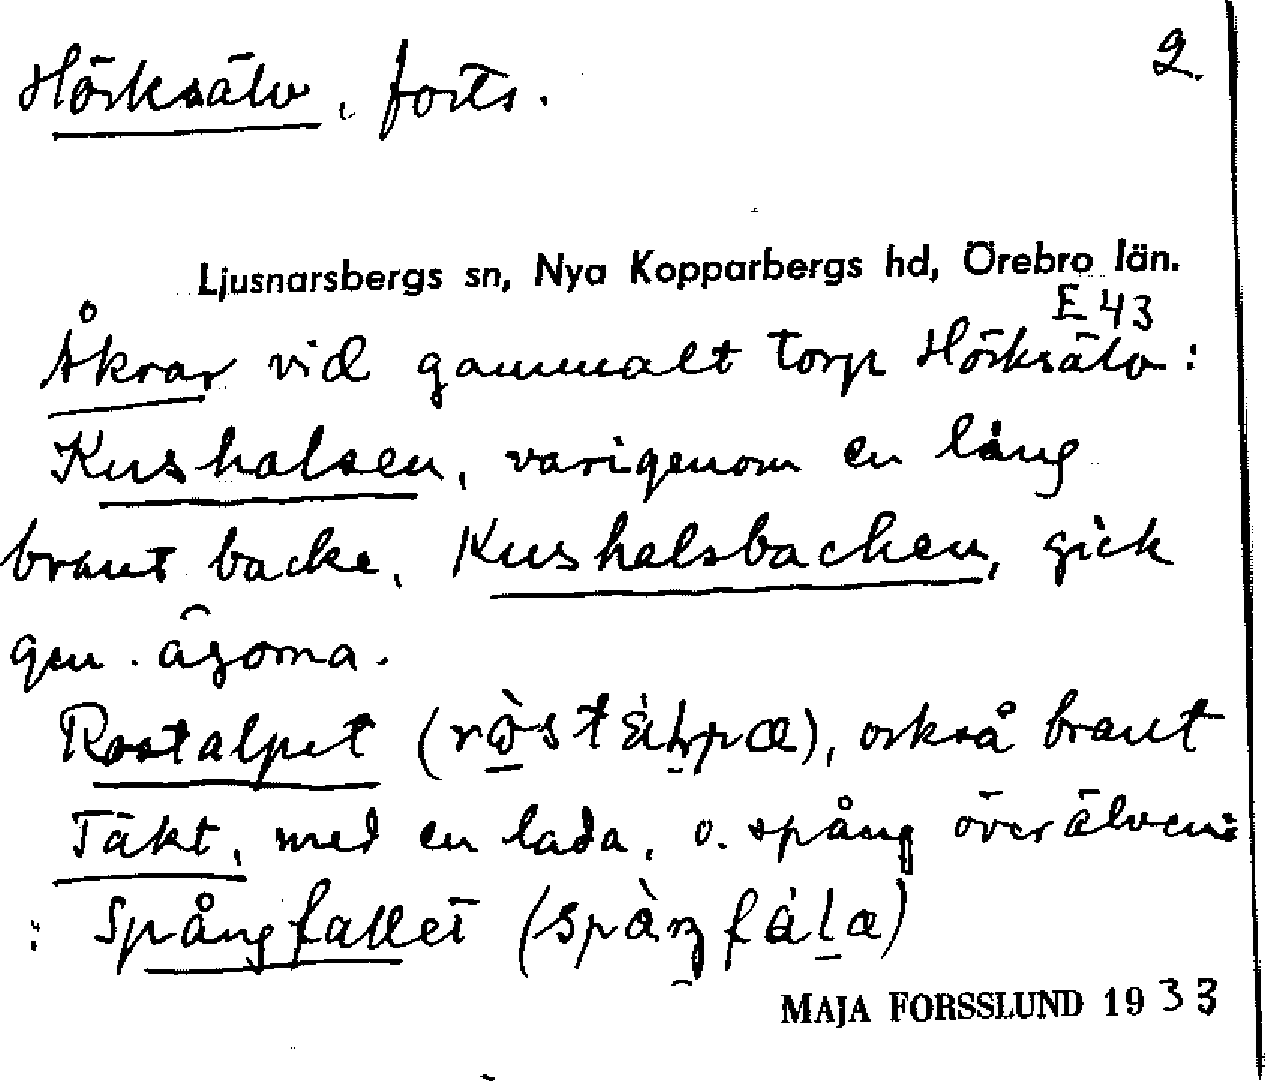 Hörksälv, forts.
2.
Ljusnarsbergs sn, Nya Kopparbergs hd, Örebro län.
E 43
Åkrar vid gammalt torp Hörksälv:
Kushalsen, varigenom en lång
brant backe, Kushalsbacken, gick
gen. ägorna.
Rostalpet (), också brant
Täkt, med en lada, o. spång över älven:
: Spångfallet ()
MAJA FORSSLUND 1933